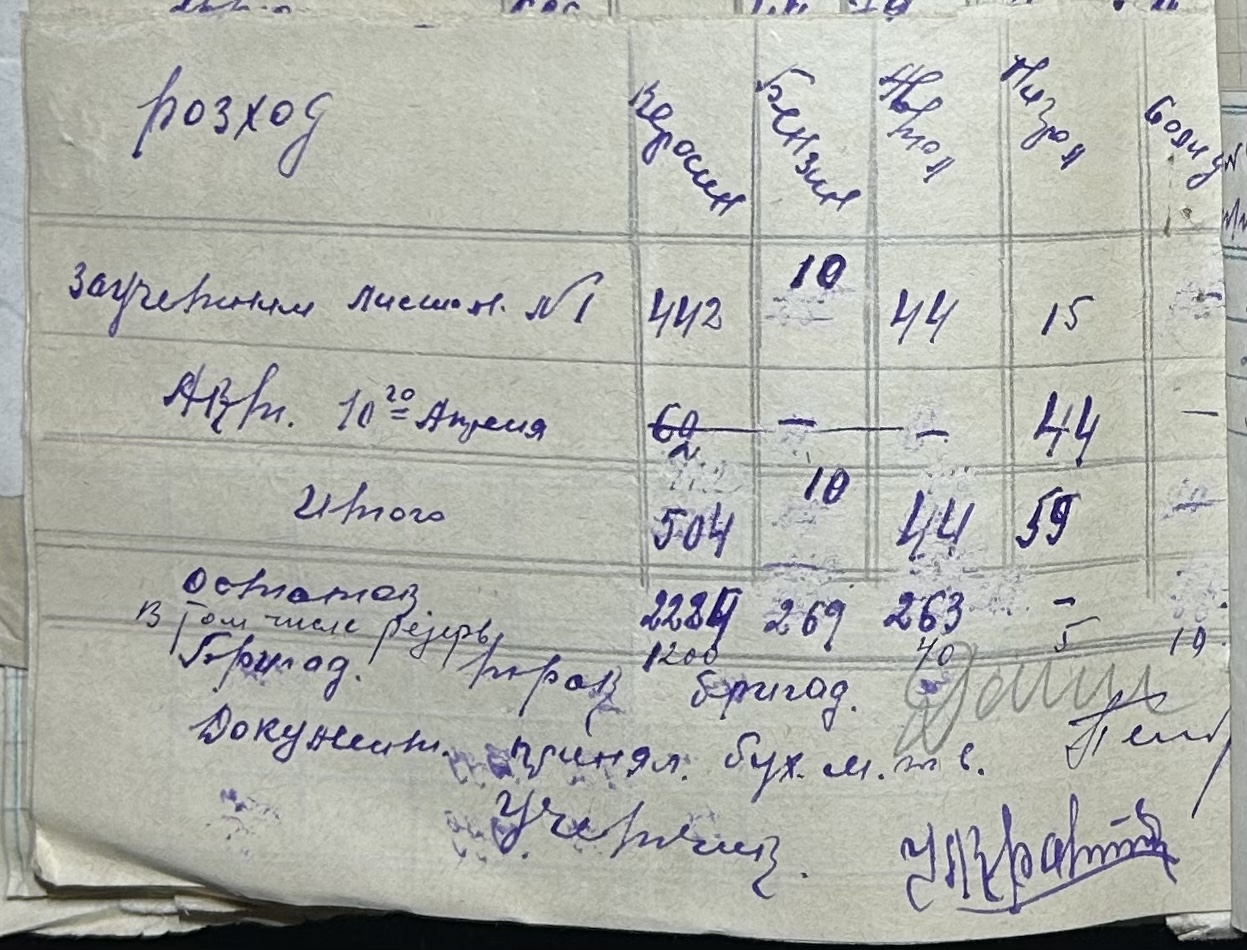 розход Керосин Бензин Автол Нигрол
Заучетним листом. №1 442 10 44 15 -
Акт. 10го Апреля 60 - - 44 -
Итого 504 10 44 59 -
остаток 2284 269 263 -
В том числе резерв 1200 40 5 10
Бригад. бригад.
Документ. принял. бух. м. т в.
Учетчик.